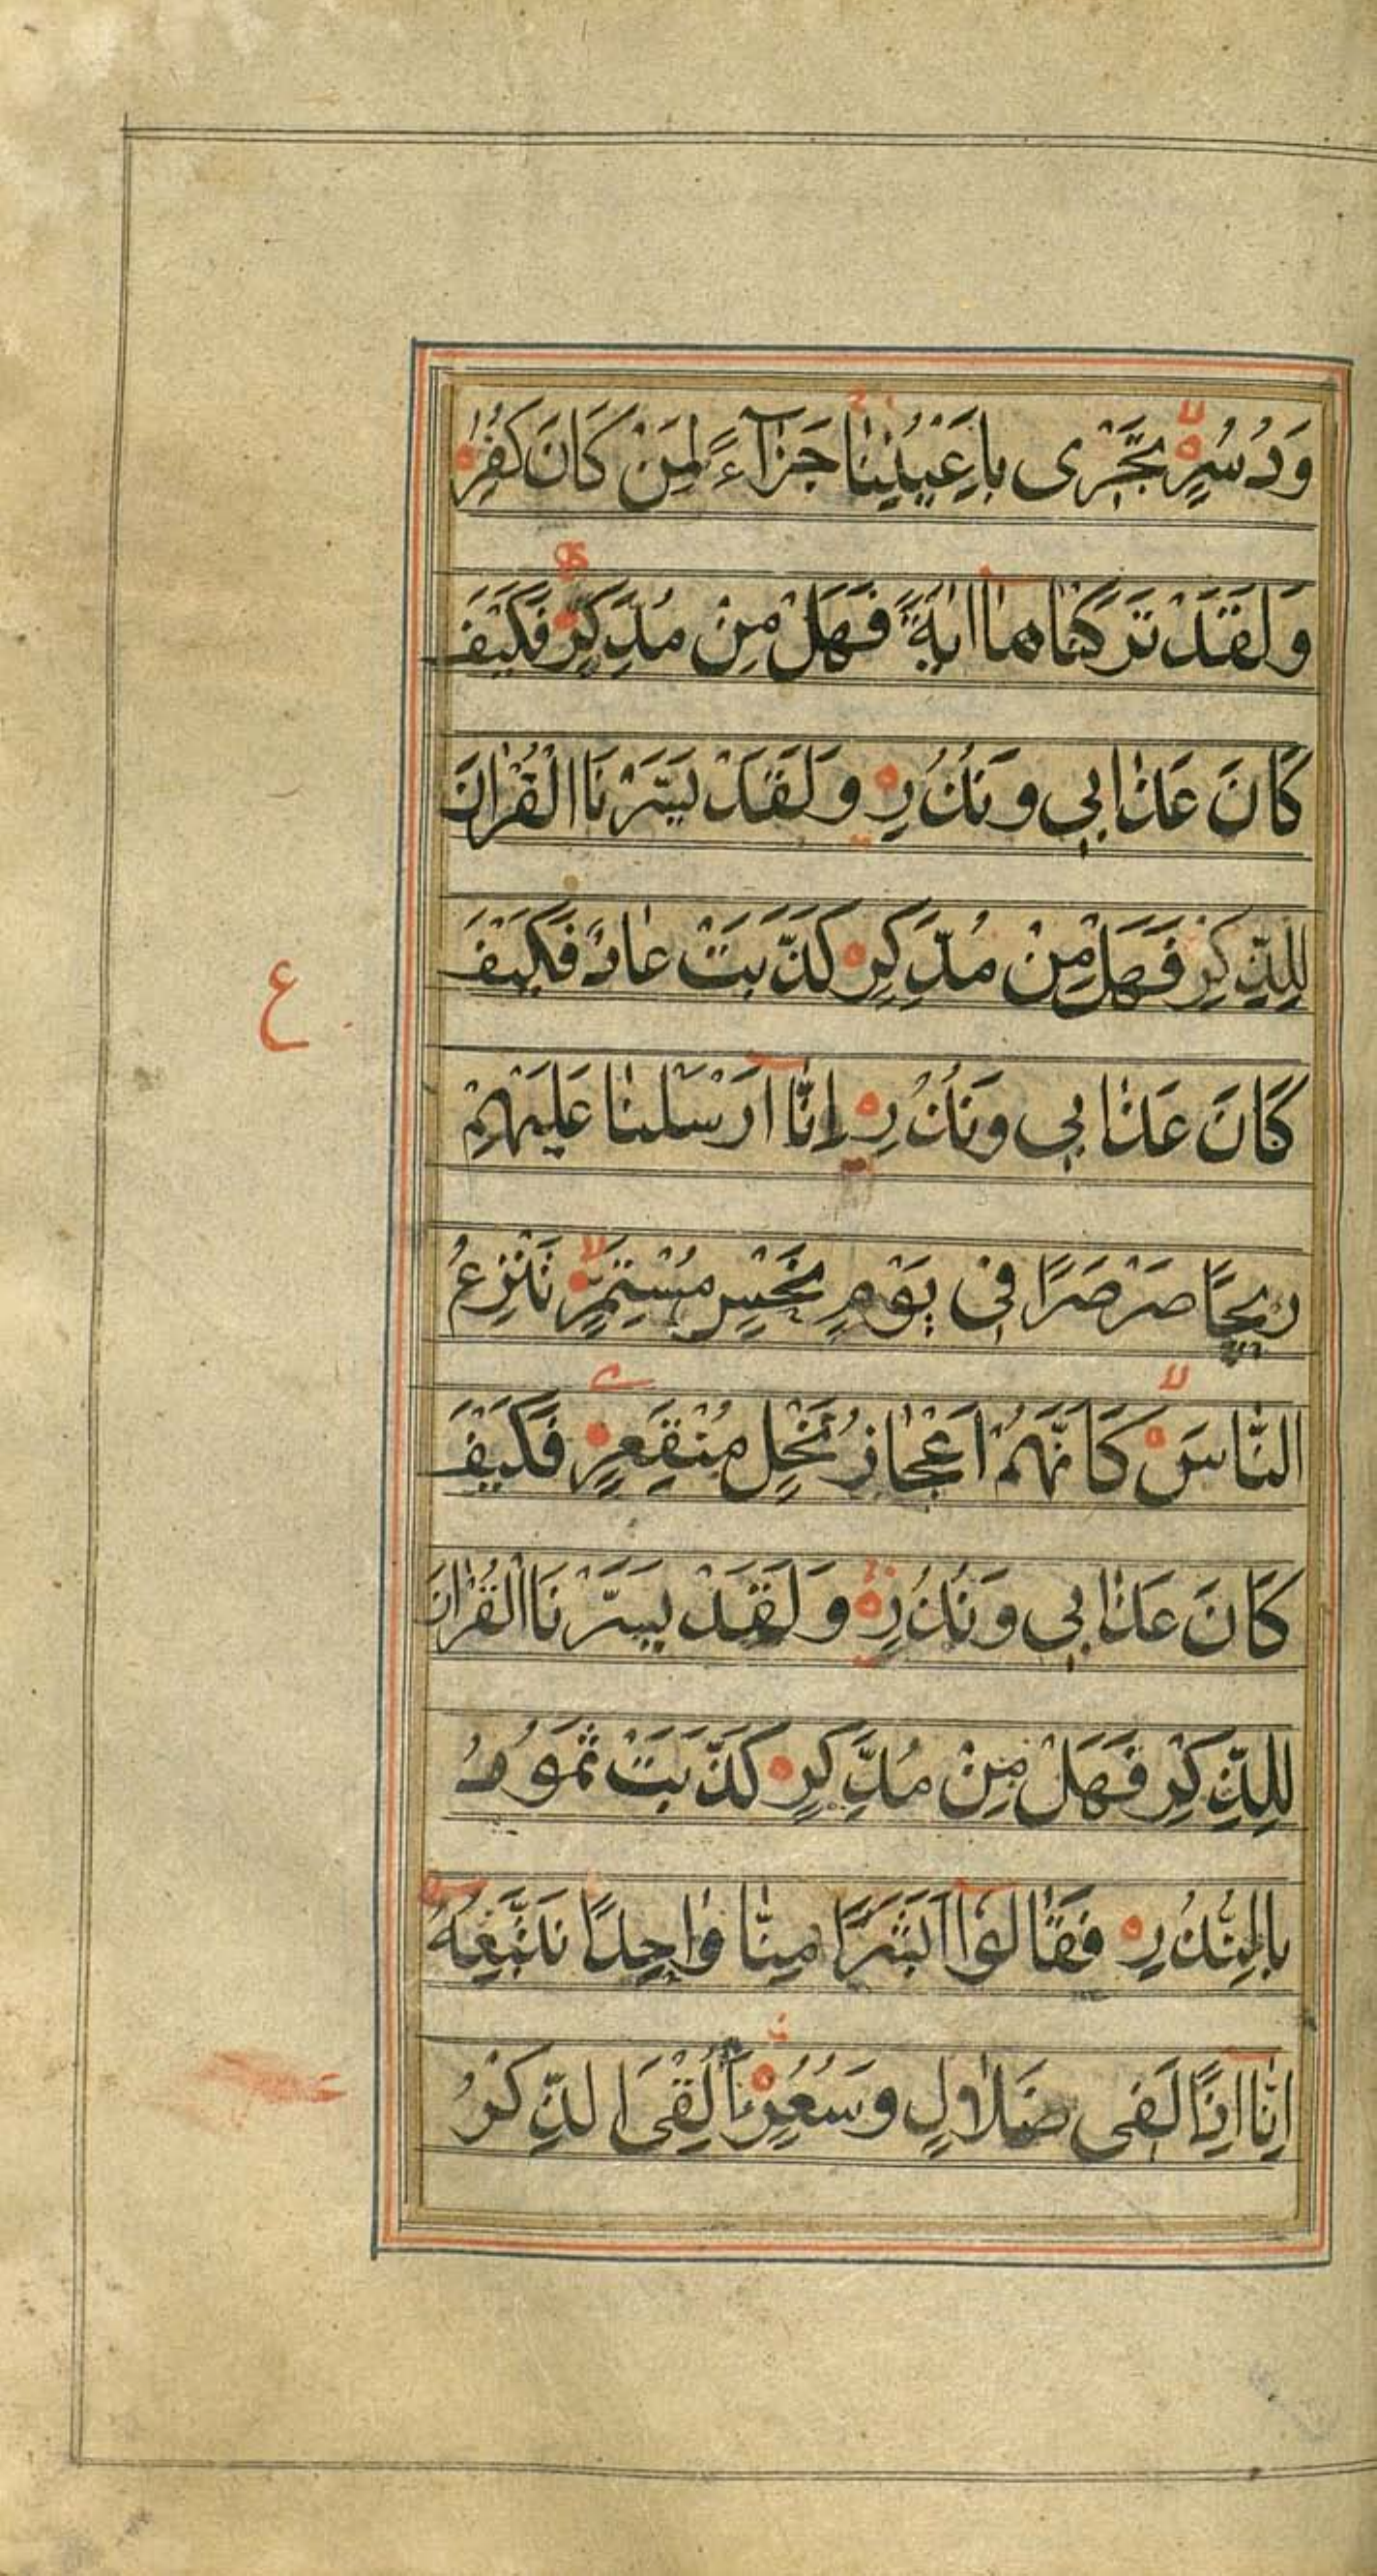 وَدُسُرٍ تَجْرِى بِاَعْيُنِنَا جَزَآءً لِمَنْ كَانَ كُفِرَ
وَلَقَدْ تَرَكْنَاهَا اٰيَةً فَهَلْ مِنْ مُدَّكِرٍ فَكَيْفَ
كَانَ عَذَابِي وَنُذُرِ وَلَقَدْ يَسَّرْنَا الْقُرْاٰنَ
لِلذِّكْرِ فَهَلْ مِنْ مُدَّكِرٍ كَذَّبَتْ عَادٌ فَكَيْفَ
كَانَ عَذَابِي وَنُذُرِ اِنَّا اَرْسَلْنَا عَلَيْهِمْ
رِيحًا صَرْصَرًا فِى يَوْمِ نَحْسٍ مُسْتَمِرٍّ تَنْزِعُ
النَّاسَ كَاَنَّهُمْ اَعْجَازُ نَخْلٍ مُنْقَعِرٍ فَكَيْفَ
كَانَ عَذَابِي وَنُذُرِ وَلَقَدْ يَسَّرْنَا الْقُرْاٰنَ
لِلذِّكْرِ فَهَلْ مِنْ مُدَّكِرٍ كَذَّبَتْ ثَمُودُ
بِالنُّذُرِ فَقَالُوٓا اَبَشَرًا مِنَّا وَاحِدًا نَتَّبِعُهُ
اِنَّا اِذًا لَفِى ضَلَالٍ وَسُعُرٍ ءَاُلْقِىَ الذِّكْرُ
ع